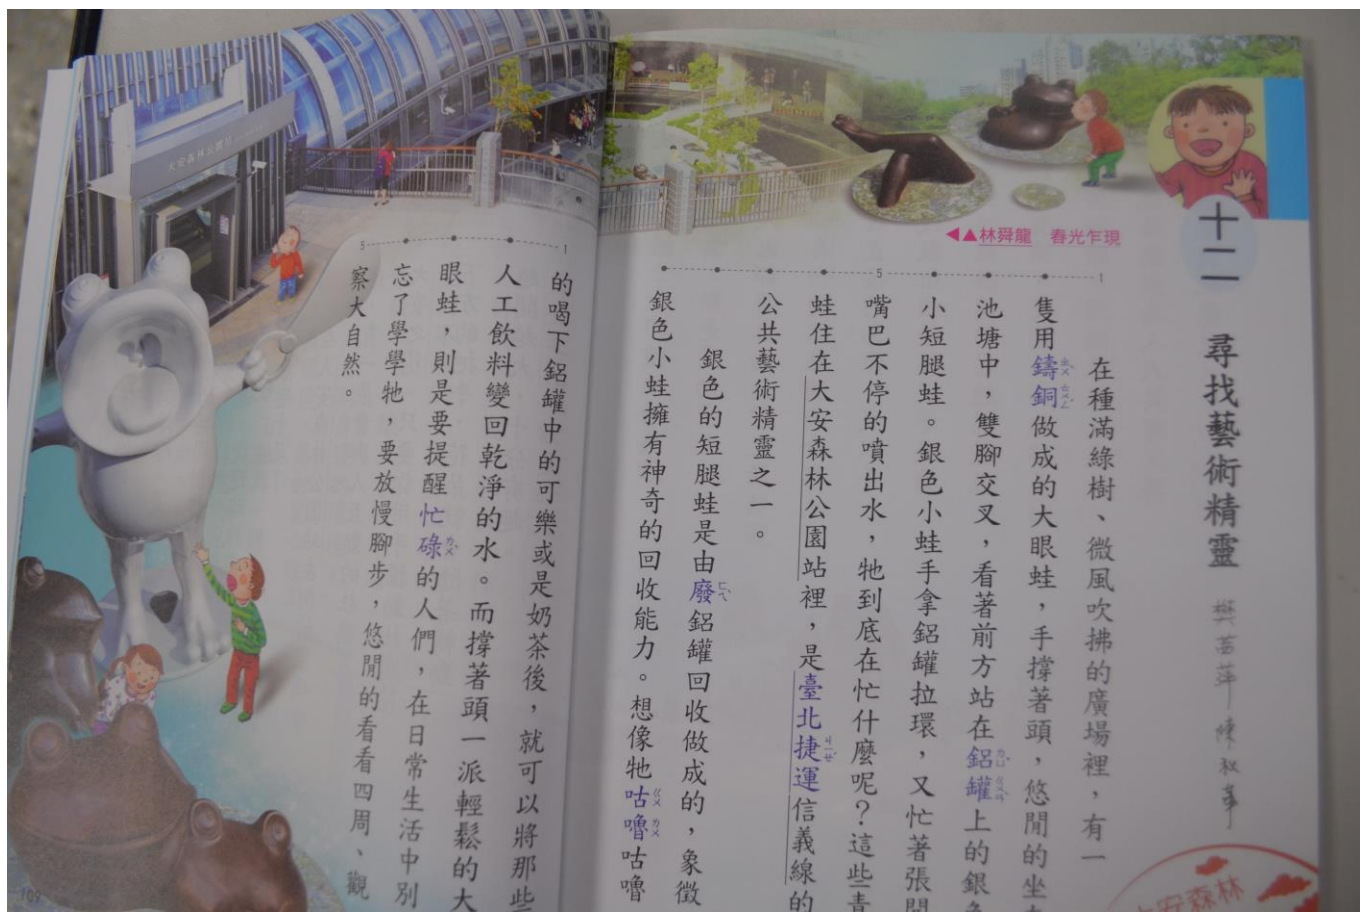 十二
尋找藝術精靈
樊茵萍
◀▲林舜龍 春光乍現
在種滿綠樹、微風吹拂的廣場裡，有一
隻用鑄銅做成的大眼蛙，手撐著頭，悠閒的坐在
池塘中，雙腳交叉，看著前方站在鋁罐上的銀色
小短腿蛙。銀色小蛙手拿鋁罐拉環，又忙著張開
嘴巴不停的噴出水，牠到底在忙什麼呢？這些青
蛙住在大安森林公園站裡，是臺北捷運信義線的
公共藝術精靈之一。
銀色的短腿蛙是由廢鋁罐回收做成的，象徵
銀色小蛙擁有神奇的回收能力。想像牠咕嚕咕嚕
的喝下鋁罐中的可樂或是奶茶後，就可以將那些
人工飲料變回乾淨的水。而撐著頭一派輕鬆的大
眼蛙，則是要提醒忙碌的人們，在日常生活中別
忘了學學牠，要放慢腳步，悠閒的看看四周、觀
察大自然。
大安森林公園站
大安森林
109